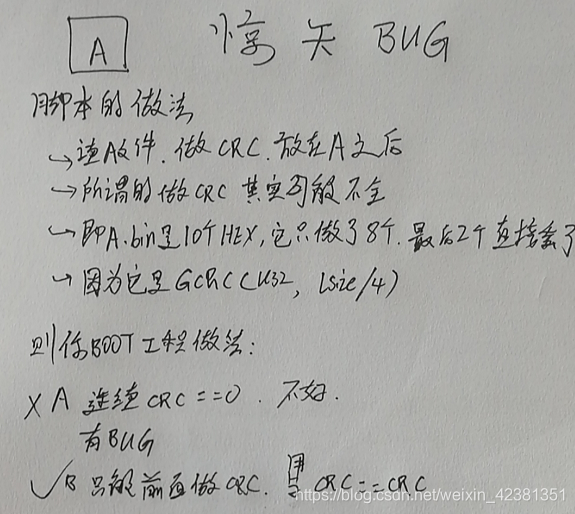 A 惊天 BUG
脚本的做法
→ 读A文件. 做CRC. 放在A之后
→ 所谓的做CRC 其实可能不全
→ 即A.bin是10个HEX, 它只做了8个. 最后2个直接丢了
→ 因为它是GCRC(U32, (size/4)
则你BOOT工程做法:
X A 连续CRC==0. 不好.
有BUG
✓B 只能前面做CRC. 用 CRC==CRC
https://blog.csdn.net/weixin_42381351